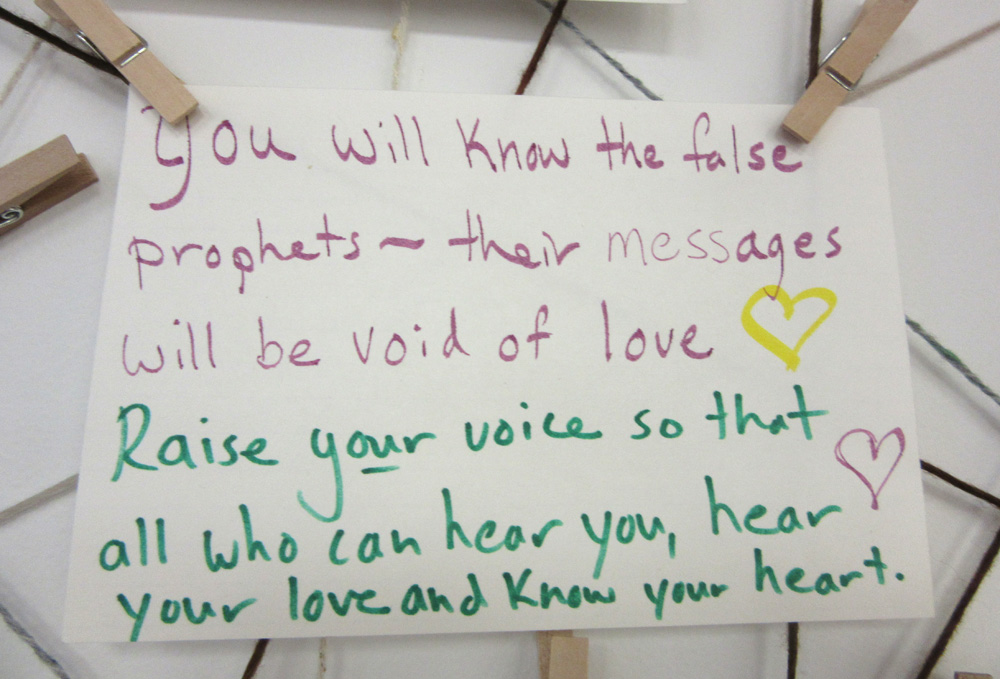 You will know the false
prophets ~ their messages
will be void of love
Raise your voice so that
all who can hear you, hear
your love and know your heart.